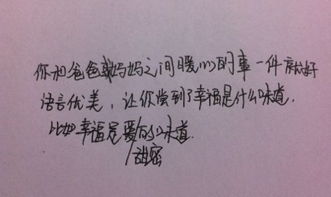 你和爸爸或妈妈之间暖心的事一件就好
语言优美，让你尝到了幸福是什么味道.
比如幸福是爱的味道.
/甜蜜